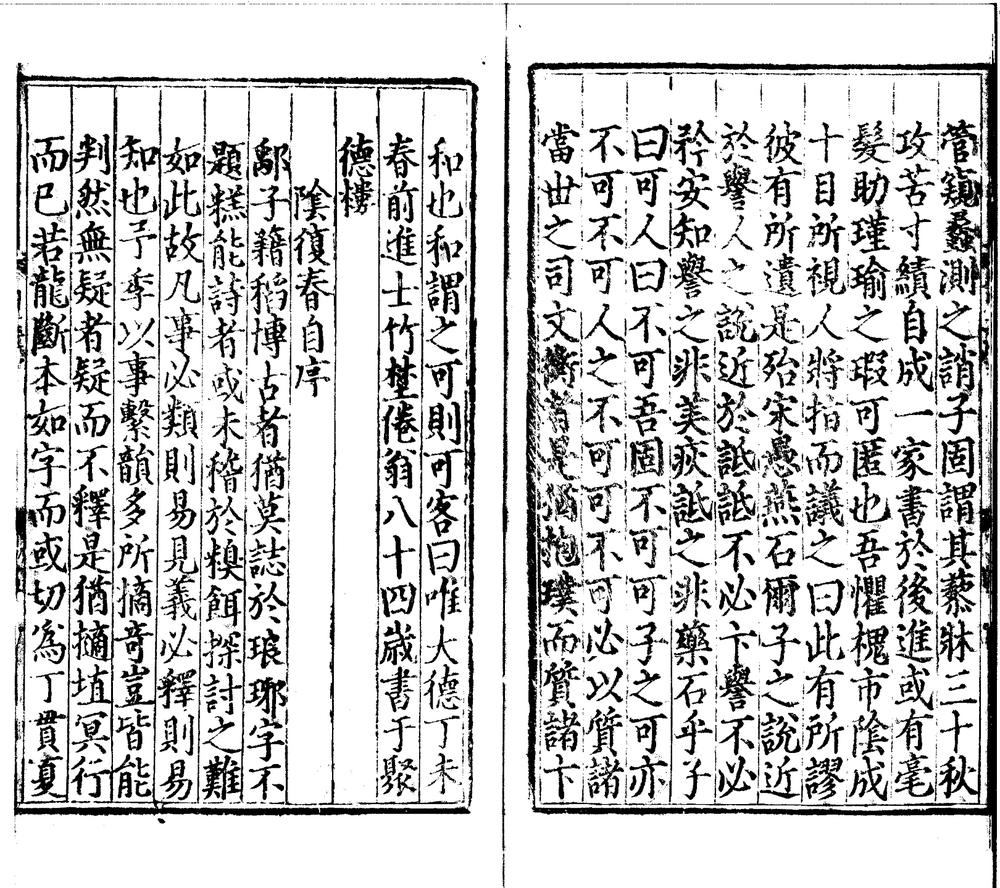 管窺蠡測之誚子固謂其藜牀三十秋
攻苦寸績自成一家書於後進或有毫
髮助瑾瑜之瑕可匿也吾懼槐市陰成
十目所視人將指而議之曰此有所謬
彼有所遺是殆宋愚燕石爾子之說近
於譽人之說近於詆詆不必卞譽不必
矜安知譽之非美疢詆之非藥石乎子
曰可人曰不可吾固不可可子之可亦
不可不可人之不可可不可必以質諸
當世之司文衡者是猶抱璞而質諸卞
和也和謂之可則可客曰唯大德丁未
春前進士竹埜倦翁八十四歲書于聚
德樓
陰復春自序
鄅子籍稻博古者猶莫誌於琅琊字不
題糕能詩者或未稽於糗餌探討之難
如此故凡事必類則易見義必釋則易
知也予季以事繫韻多所摘奇豈皆能
判然無疑者疑而不釋是猶擿埴冥行
而已若龍斷本如字而或切爲丁貫夏